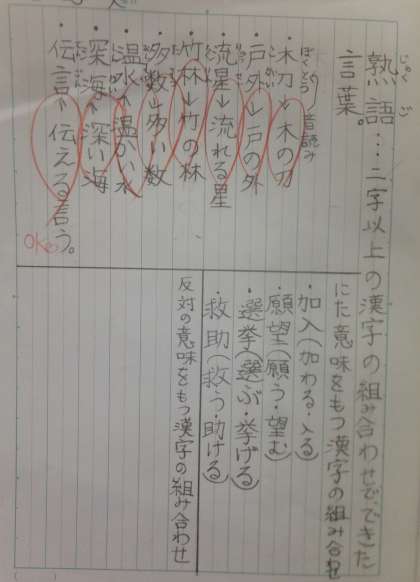 熟語…二字以上の漢字の組み合わせでできた
言葉。
・木刀→木の刀
・戸外→戸の外
・流星→流れる星
・竹林→竹の林
・多数→多い数
・温水→温かい水
・深海→深い海
・伝言→伝える言う。
OK
音読み
ぼくとう
じゅくご
にた意味をもつ漢字の組み合わせ
・加入(加わる・入る)
・願望(願う・望む)
・選挙(選ぶ・挙げる)
・救助(救う・助ける)
反対の意味をもつ漢字の組み合わせ